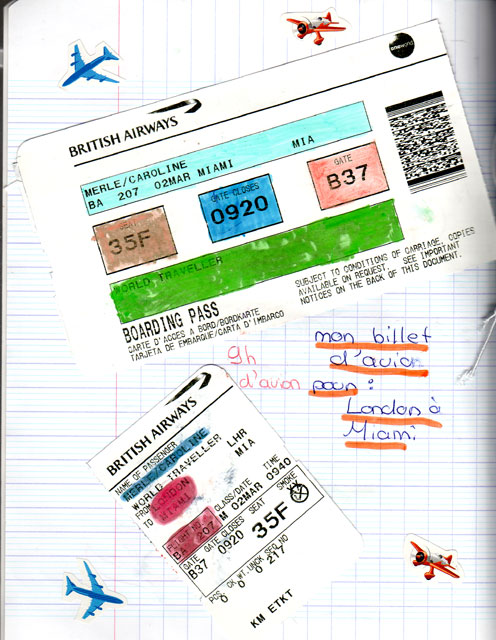 oneworld
BRITISH AIRWAYS
MERLE/CAROLINE
BA 207 02MAR MIAMI MIA
GATE CLOSES
GATE
35F
0920
B37
WORLD TRAVELLER
BOARDING PASS
CARTE D'ACCES A BORD/BORDKARTE
TARJETA DE EMBARQUE/CARTA D'IMBARCO
SUBJECT TO CONDITIONS OF CARRIAGE, COPIES
AVAILABLE ON REQUEST. SEE IMPORTANT
NOTICES ON THE BACK OF THIS DOCUMENT.
9h
d'avion
mon billet
d'avion
pour :
London à
Miami
BRITISH AIRWAYS
NAME OF PASSENGER
MERLE/CAROLINE
WORLD TRAVELLER
FROM LONDON LHR
TO MIAMI MIA
CLASS/DATE TIME
BA 207 M 02MAR 0940
GATE GATE CLOSES SEAT SMOKE
B37 0920 35F
PCS CK.WT. UNCK SEQ NO
0 0 0 217
KM ETKT